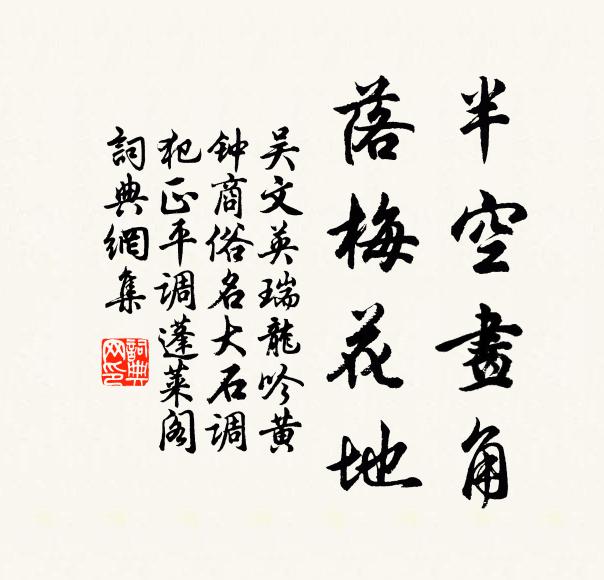 半空畫角
落梅花地
吴文英瑞龍吟黄
钟商俗名大石調
犯正平調蓬莱阁
詞典網集
詞典
网印